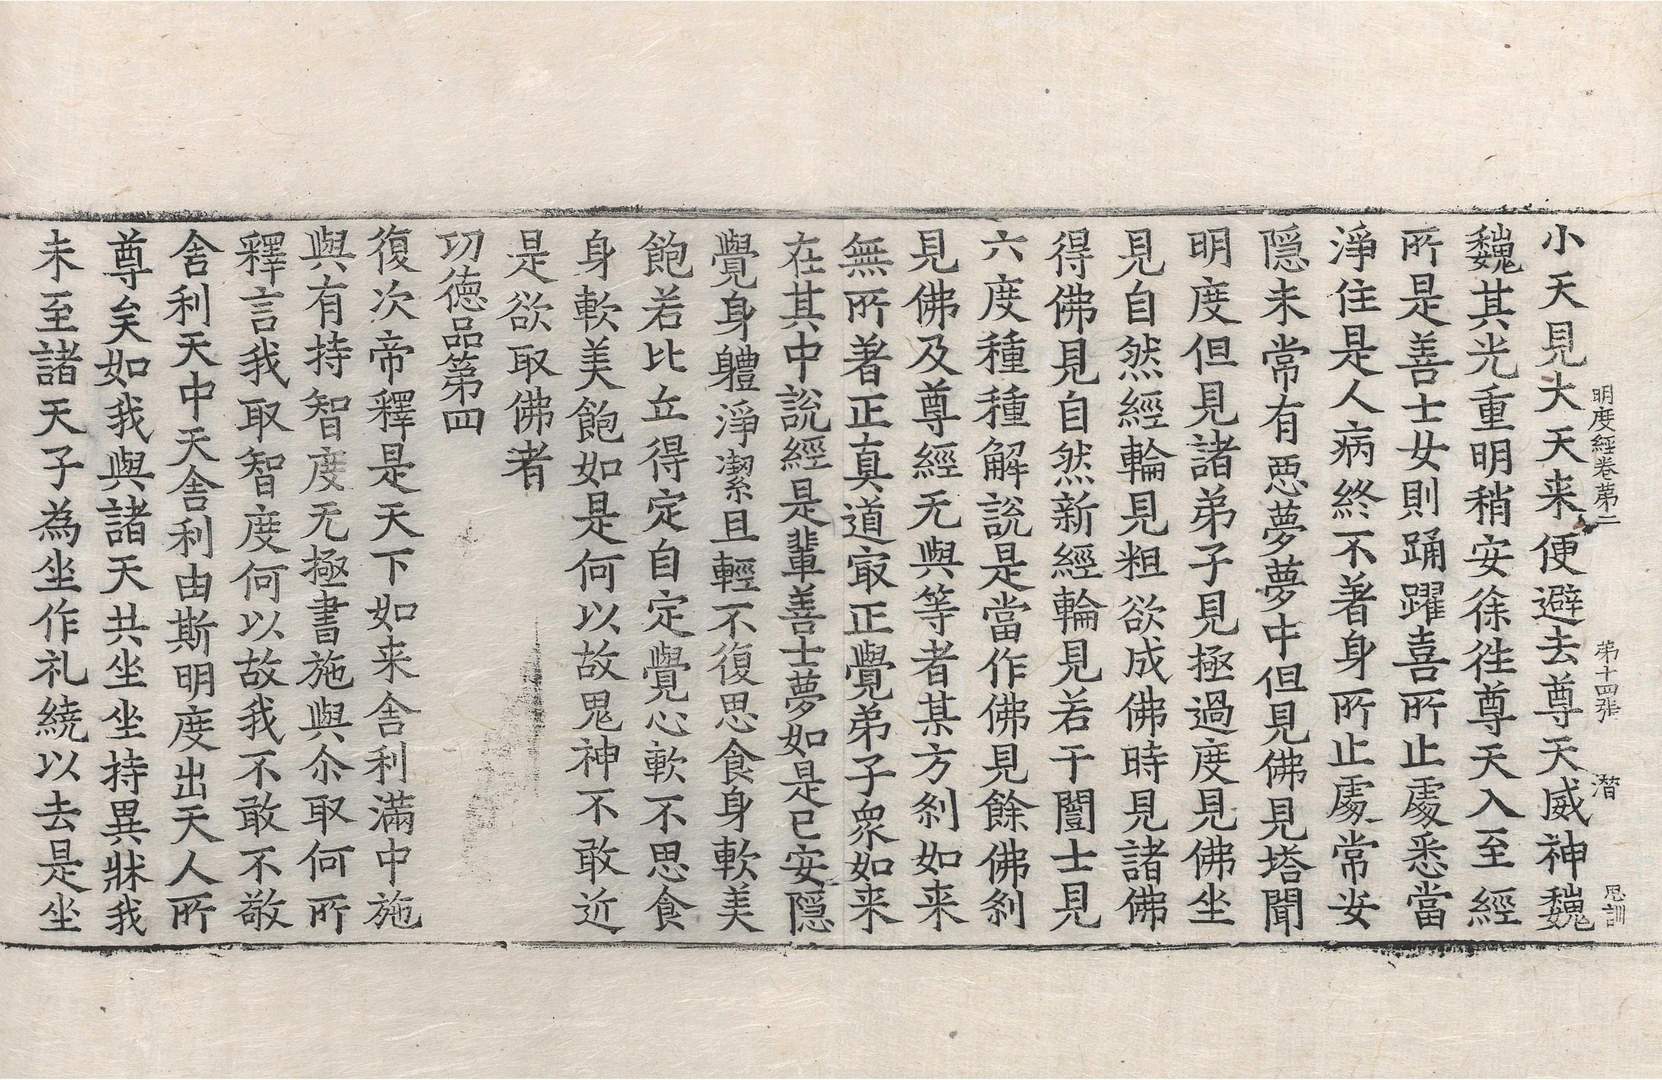 明度經卷第二 第十四張 潛 思訓
小天見大天来便避去尊天威神巍
巍其光重明稍安徐徃尊天入至經
所是善士女則踊躍喜所止處悉當
淨住是人病終不著身所止處常安
隱未常有惡夢夢中但見佛見塔聞
明度但見諸弟子見極過度見佛坐
見自然經輪見粗欲成佛時見諸佛
得佛見自然新經輪見若干闓士見
六度種種解說是當作佛見餘佛剎
見佛及尊經无與等者某方剎如来
無所著正真道冣正覺弟子衆如来
在其中說經是輩善士夢如是已安隱
覺身軆淨潔且輕不復思食身軟美
飽若比丘得定自定覺心軟不思食
身軟美飽如是何以故鬼神不敢近
是欲取佛者
功德品第四
復次帝釋是天下如来舍利滿中施
與有持智度无極書施與尒取何所
釋言我取智度何以故我不敢不敬
舍利天中天舍利由斯明度出天人所
尊矣如我與諸天共坐坐持異牀我
未至諸天子為坐作礼繞以去是坐